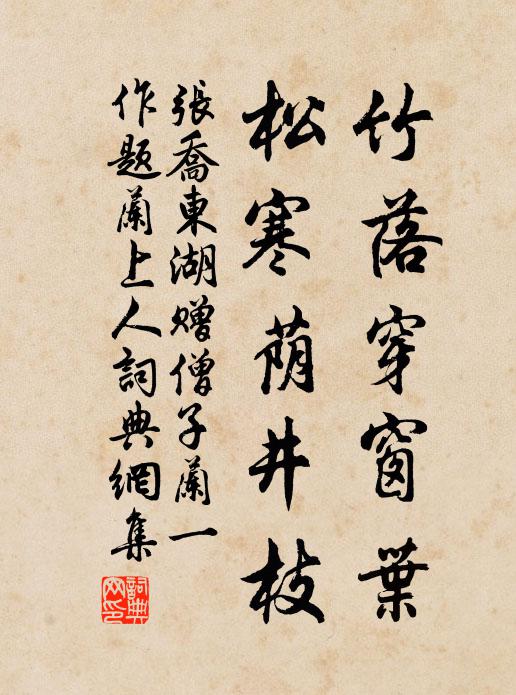 竹落穿窗葉
松寒荫井枝
張喬東湖贈僧子蘭一
作題蘭上人詞典網集
詞典网印